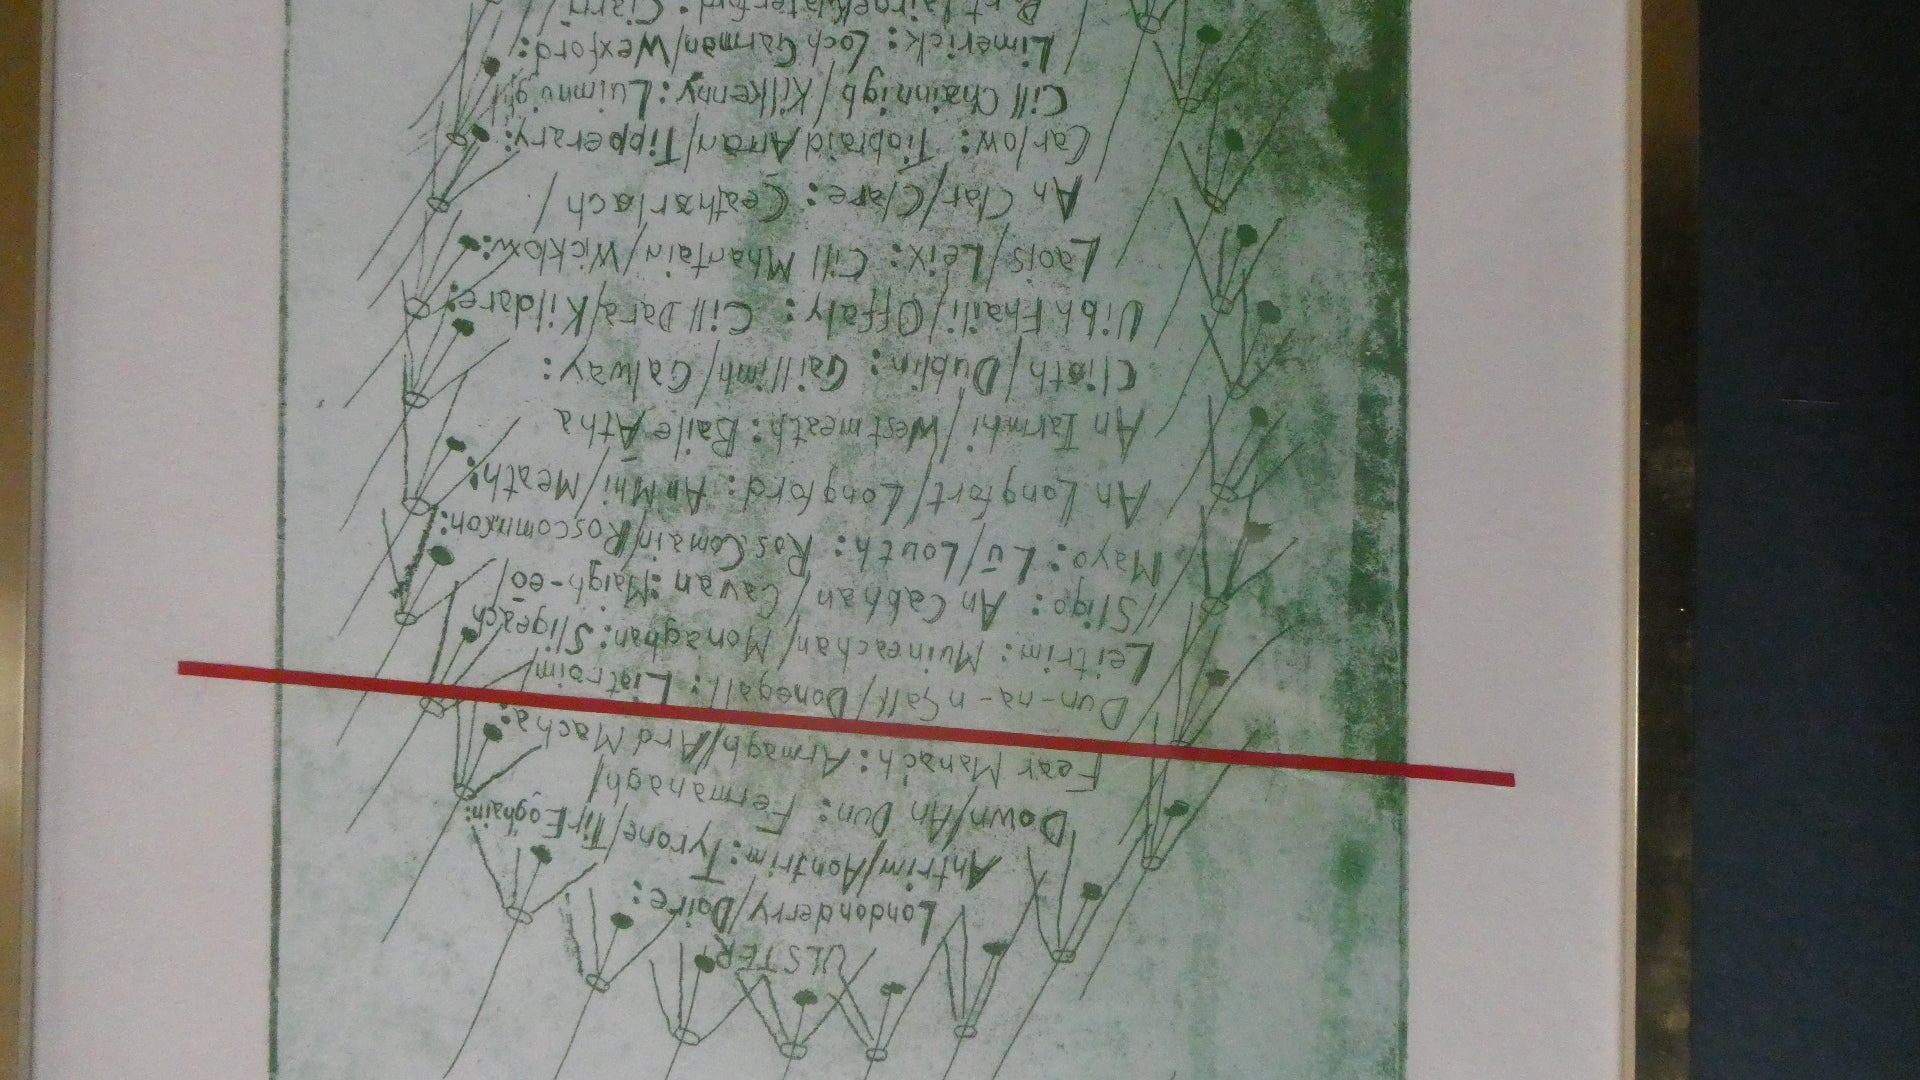 ULSTER
Londonderry/Doire:
Antrim/Aontrim: Tyrone/Tir Eoghain:
Down/An Dun: Fermanagh/
Fear Manach: Armagh/Ard Macha:
Dun-na-nGall/Donegall: Liatroim/
Leitrim: Muineachan/Monaghan: Sligeach
/Sligo: An Cabhan/Cavan: Maigh-eō/
Mayo: Lū/Louth: Ros Comain/Roscommon:
An Longfort/Longford: An Mhi/Meath:
An Iarmhi/Westmeath: Baile Átha
Cliath/Dublin: Gaillimh/Galway:
Uibh Fhaili/Offaly: Cill Dara/Kildare:
Laois/Leix: Cill Mhantain/Wicklow:
An Clar/Clare: Ceatharlach/
Carlow: Tiobraid Arran/Tipperary:
Cill Chainnigh/Kilkenny: Luimnigh/
Limerick: Loch Garman/Wexford: